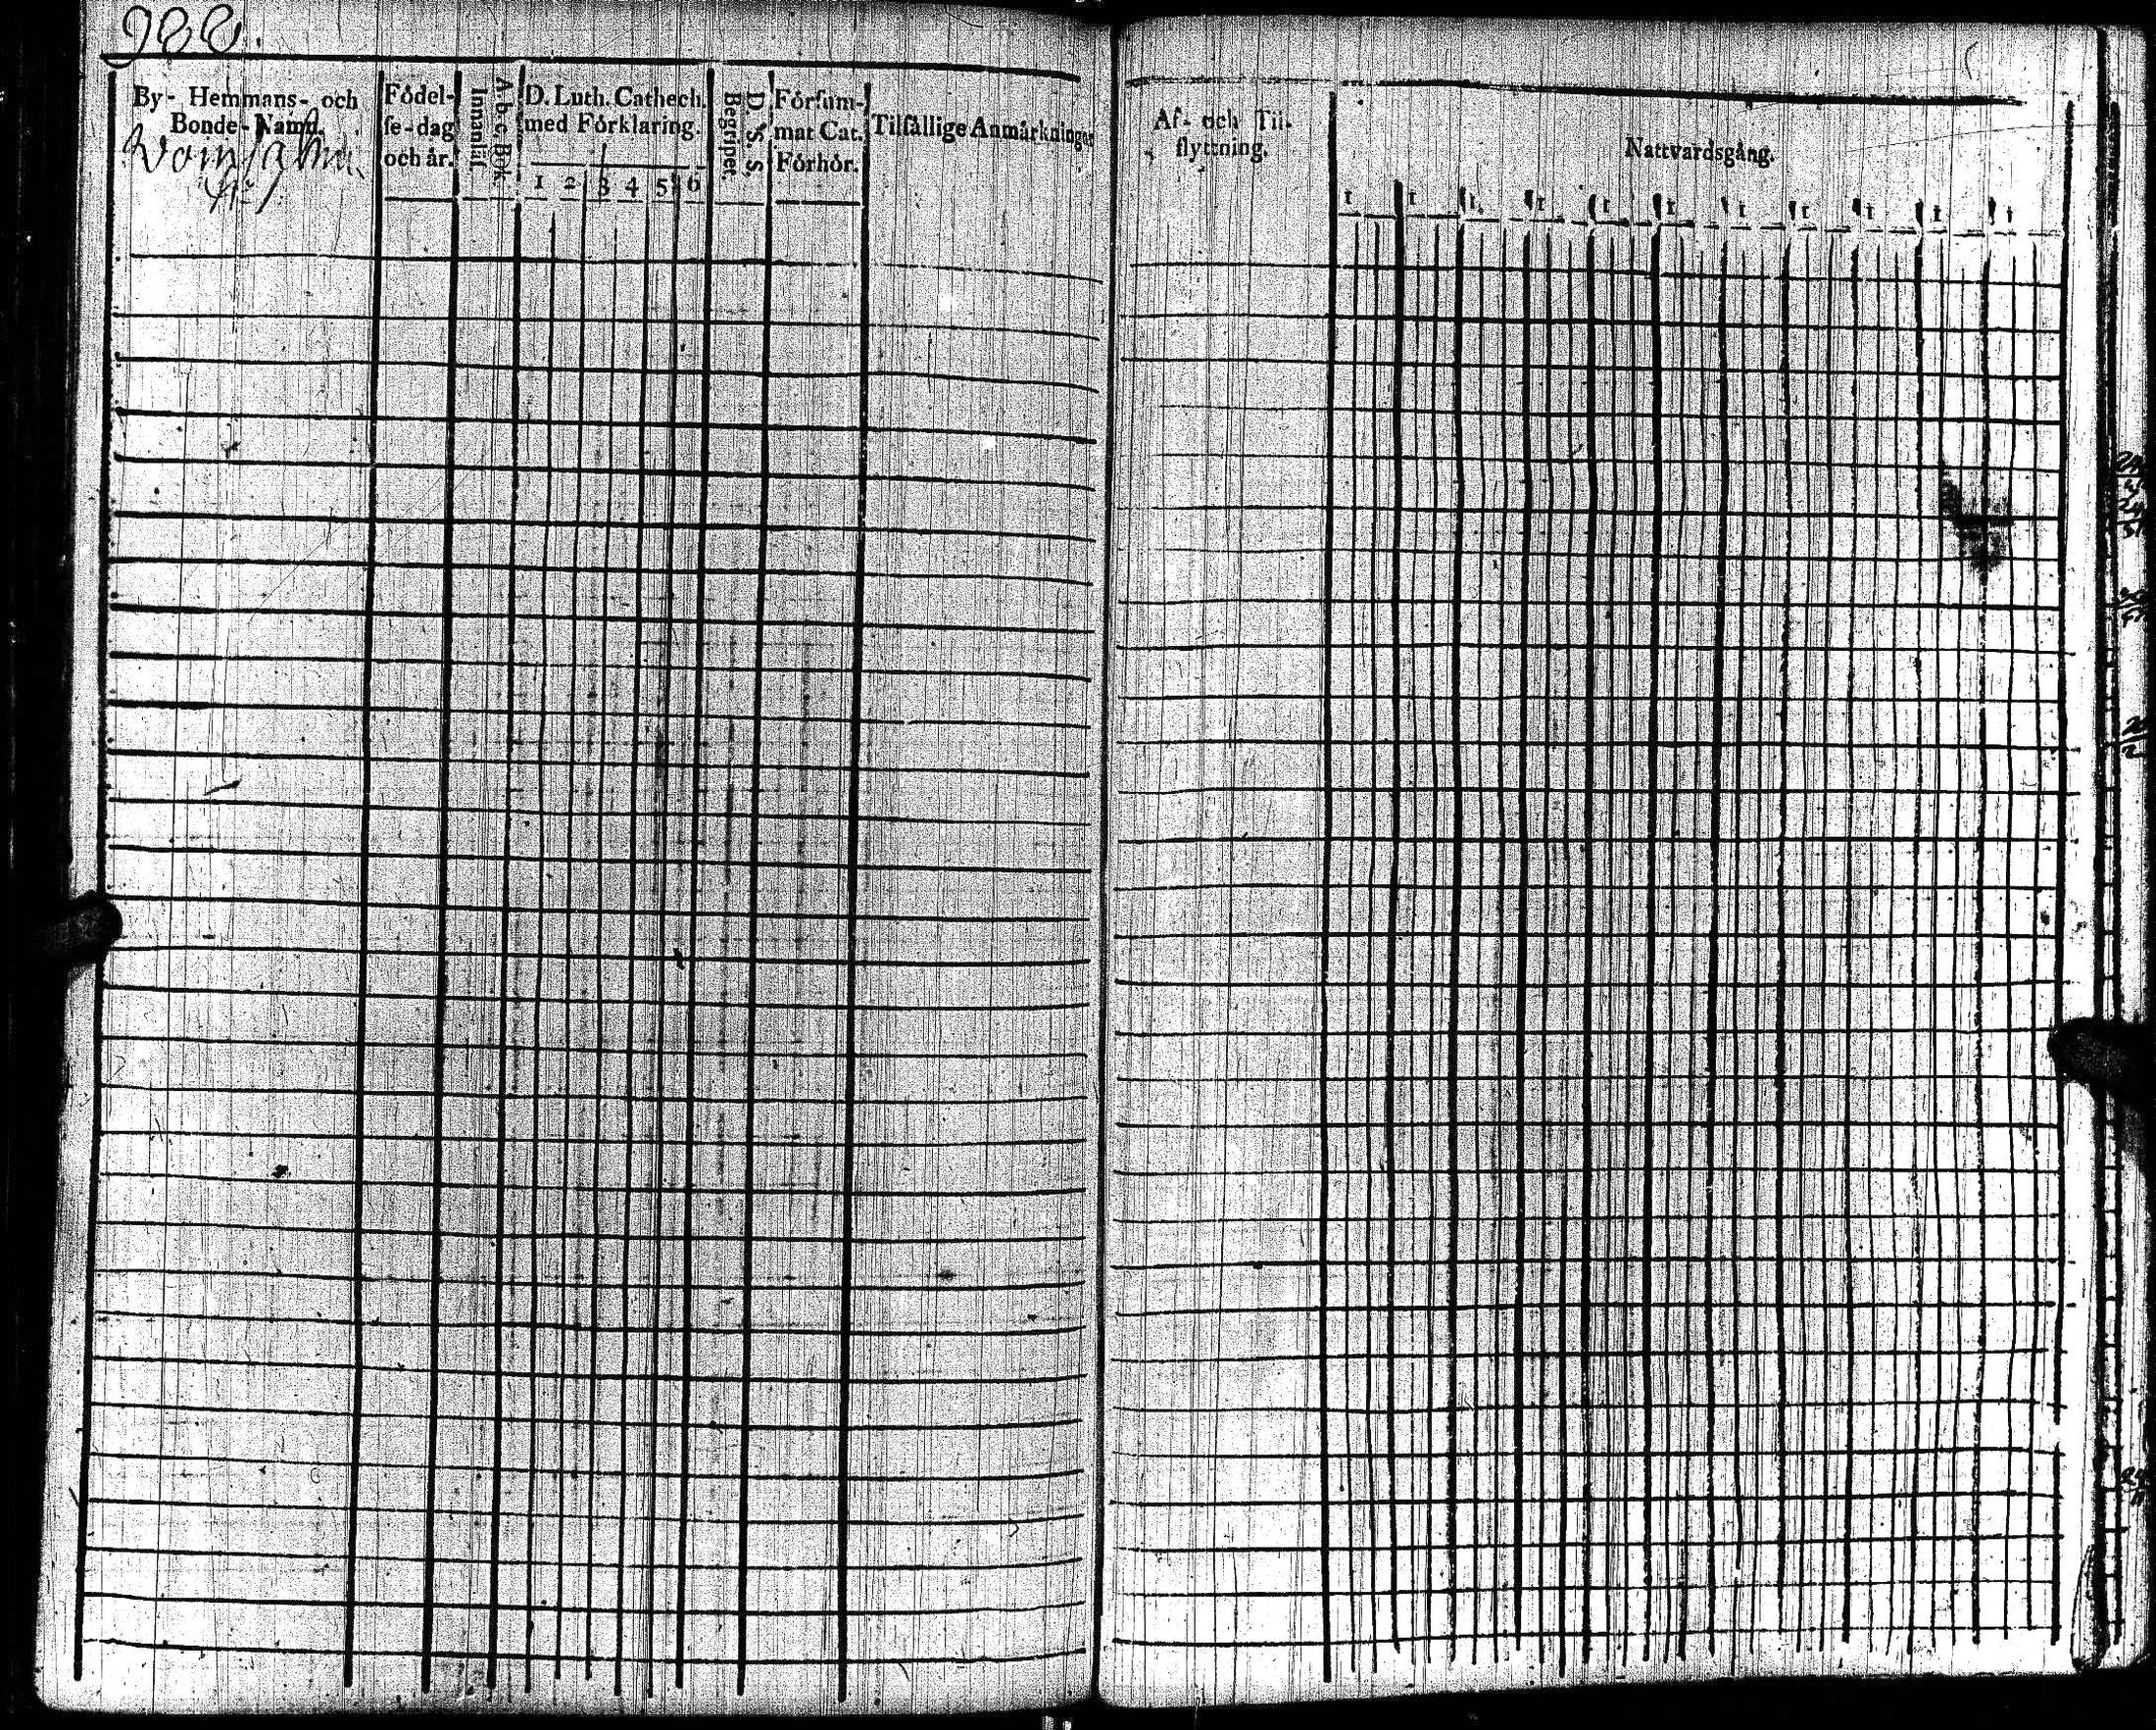 288.
By- Hemmans- och
Bonde-Namn.
Födel-
se-dag
och år.
A-b-c-Bok
Innanläs.
D. Luth. Cathech.
med Förklaring.
1 2 3 4 5 6
D. S. S.
Begripet.
Försum-
mat Cat.
Förhör.
Tilfällige Anmärkningar
Af- och Til-
flyttning.
Nattvardsgång.
1 1 1 1 1 1 1 1 1 1 1